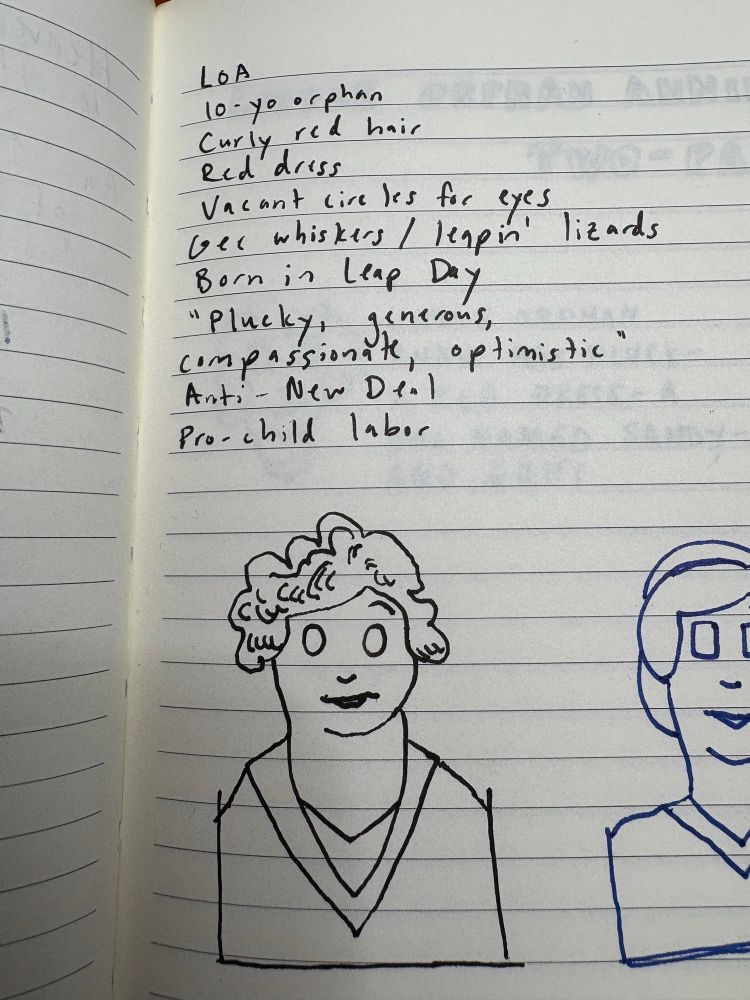 LOA
10-yo orphan
Curly red hair
Red dress
Vacant circles for eyes
Gee whiskers / leapin' lizards
Born in Leap Day
"Plucky, generous,
compassionate, optimistic"
Anti-New Deal
Pro-child labor